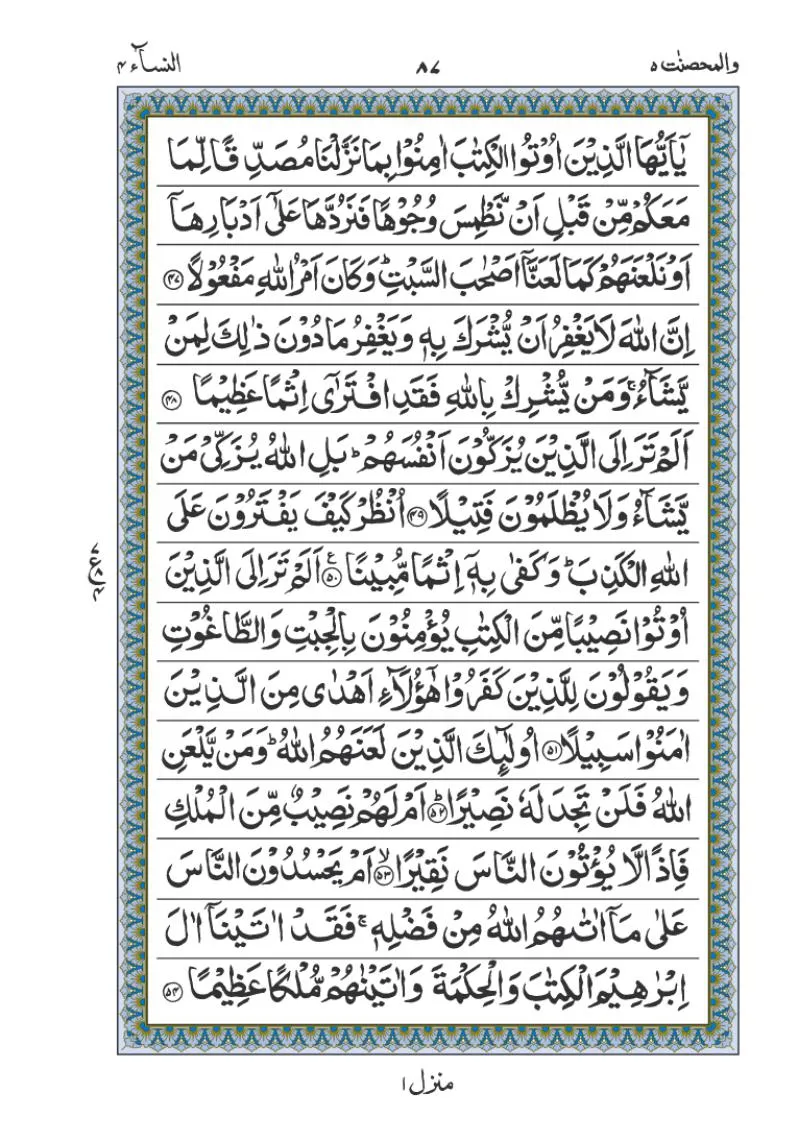 والمحصنٰت ۵ ۸۷ النسآء ۴
يٰۤاَيُّهَا الَّذِيْنَ اُوْتُوا الْكِتٰبَ اٰمِنُوْا بِمَا نَزَّلْنَا مُصَدِّقًا لِّمَا
مَعَكُمْ مِّنْ قَبْلِ اَنْ نَّطْمِسَ وُجُوْهًا فَنَرُدَّهَا عَلٰۤى اَدْبَارِهَاۤ
اَوْ نَلْعَنَهُمْ كَمَا لَعَنَّاۤ اَصْحٰبَ السَّبْتِؕ وَكَانَ اَمْرُ اللّٰهِ مَفْعُوْلًا ۝۴۷
اِنَّ اللّٰهَ لَا يَغْفِرُ اَنْ يُّشْرَكَ بِهٖ وَيَغْفِرُ مَا دُوْنَ ذٰلِكَ لِمَنْ
يَّشَآءُۚ وَمَنْ يُّشْرِكْ بِاللّٰهِ فَقَدِ افْتَرٰۤى اِثْمًا عَظِيْمًا ۝۴۸
اَلَمْ تَرَ اِلَى الَّذِيْنَ يُزَكُّوْنَ اَنْفُسَهُمْؕ بَلِ اللّٰهُ يُزَكِّيْ مَنْ
يَّشَآءُ وَلَا يُظْلَمُوْنَ فَتِيْلًا ۝۴۹ اُنْظُرْ كَيْفَ يَفْتَرُوْنَ عَلَى
اللّٰهِ الْكَذِبَؕ وَكَفٰى بِهٖۤ اِثْمًا مُّبِيْنًا ۝۵۰ۧ اَلَمْ تَرَ اِلَى الَّذِيْنَ
اُوْتُوْا نَصِيْبًا مِّنَ الْكِتٰبِ يُؤْمِنُوْنَ بِالْجِبْتِ وَالطَّاغُوْتِ
وَيَقُوْلُوْنَ لِلَّذِيْنَ كَفَرُوْا هٰۤؤُلَآءِ اَهْدٰى مِنَ الَّذِيْنَ
اٰمَنُوْا سَبِيْلًا ۝۵۱ اُولٰٓئِكَ الَّذِيْنَ لَعَنَهُمُ اللّٰهُؕ وَمَنْ يَّلْعَنِ
اللّٰهُ فَلَنْ تَجِدَ لَهٗ نَصِيْرًاؕ ۝۵۲ اَمْ لَهُمْ نَصِيْبٌ مِّنَ الْمُلْكِ
فَاِذًا لَّا يُؤْتُوْنَ النَّاسَ نَقِيْرًاۙ ۝۵۳ اَمْ يَحْسُدُوْنَ النَّاسَ
عَلٰى مَاۤ اٰتٰىهُمُ اللّٰهُ مِنْ فَضْلِهٖۚ فَقَدْ اٰتَيْنَاۤ اٰلَ
اِبْرٰهِيْمَ الْكِتٰبَ وَالْحِكْمَةَ وَاٰتَيْنٰهُمْ مُّلْكًا عَظِيْمًا ۝۵۴
منزل ۱